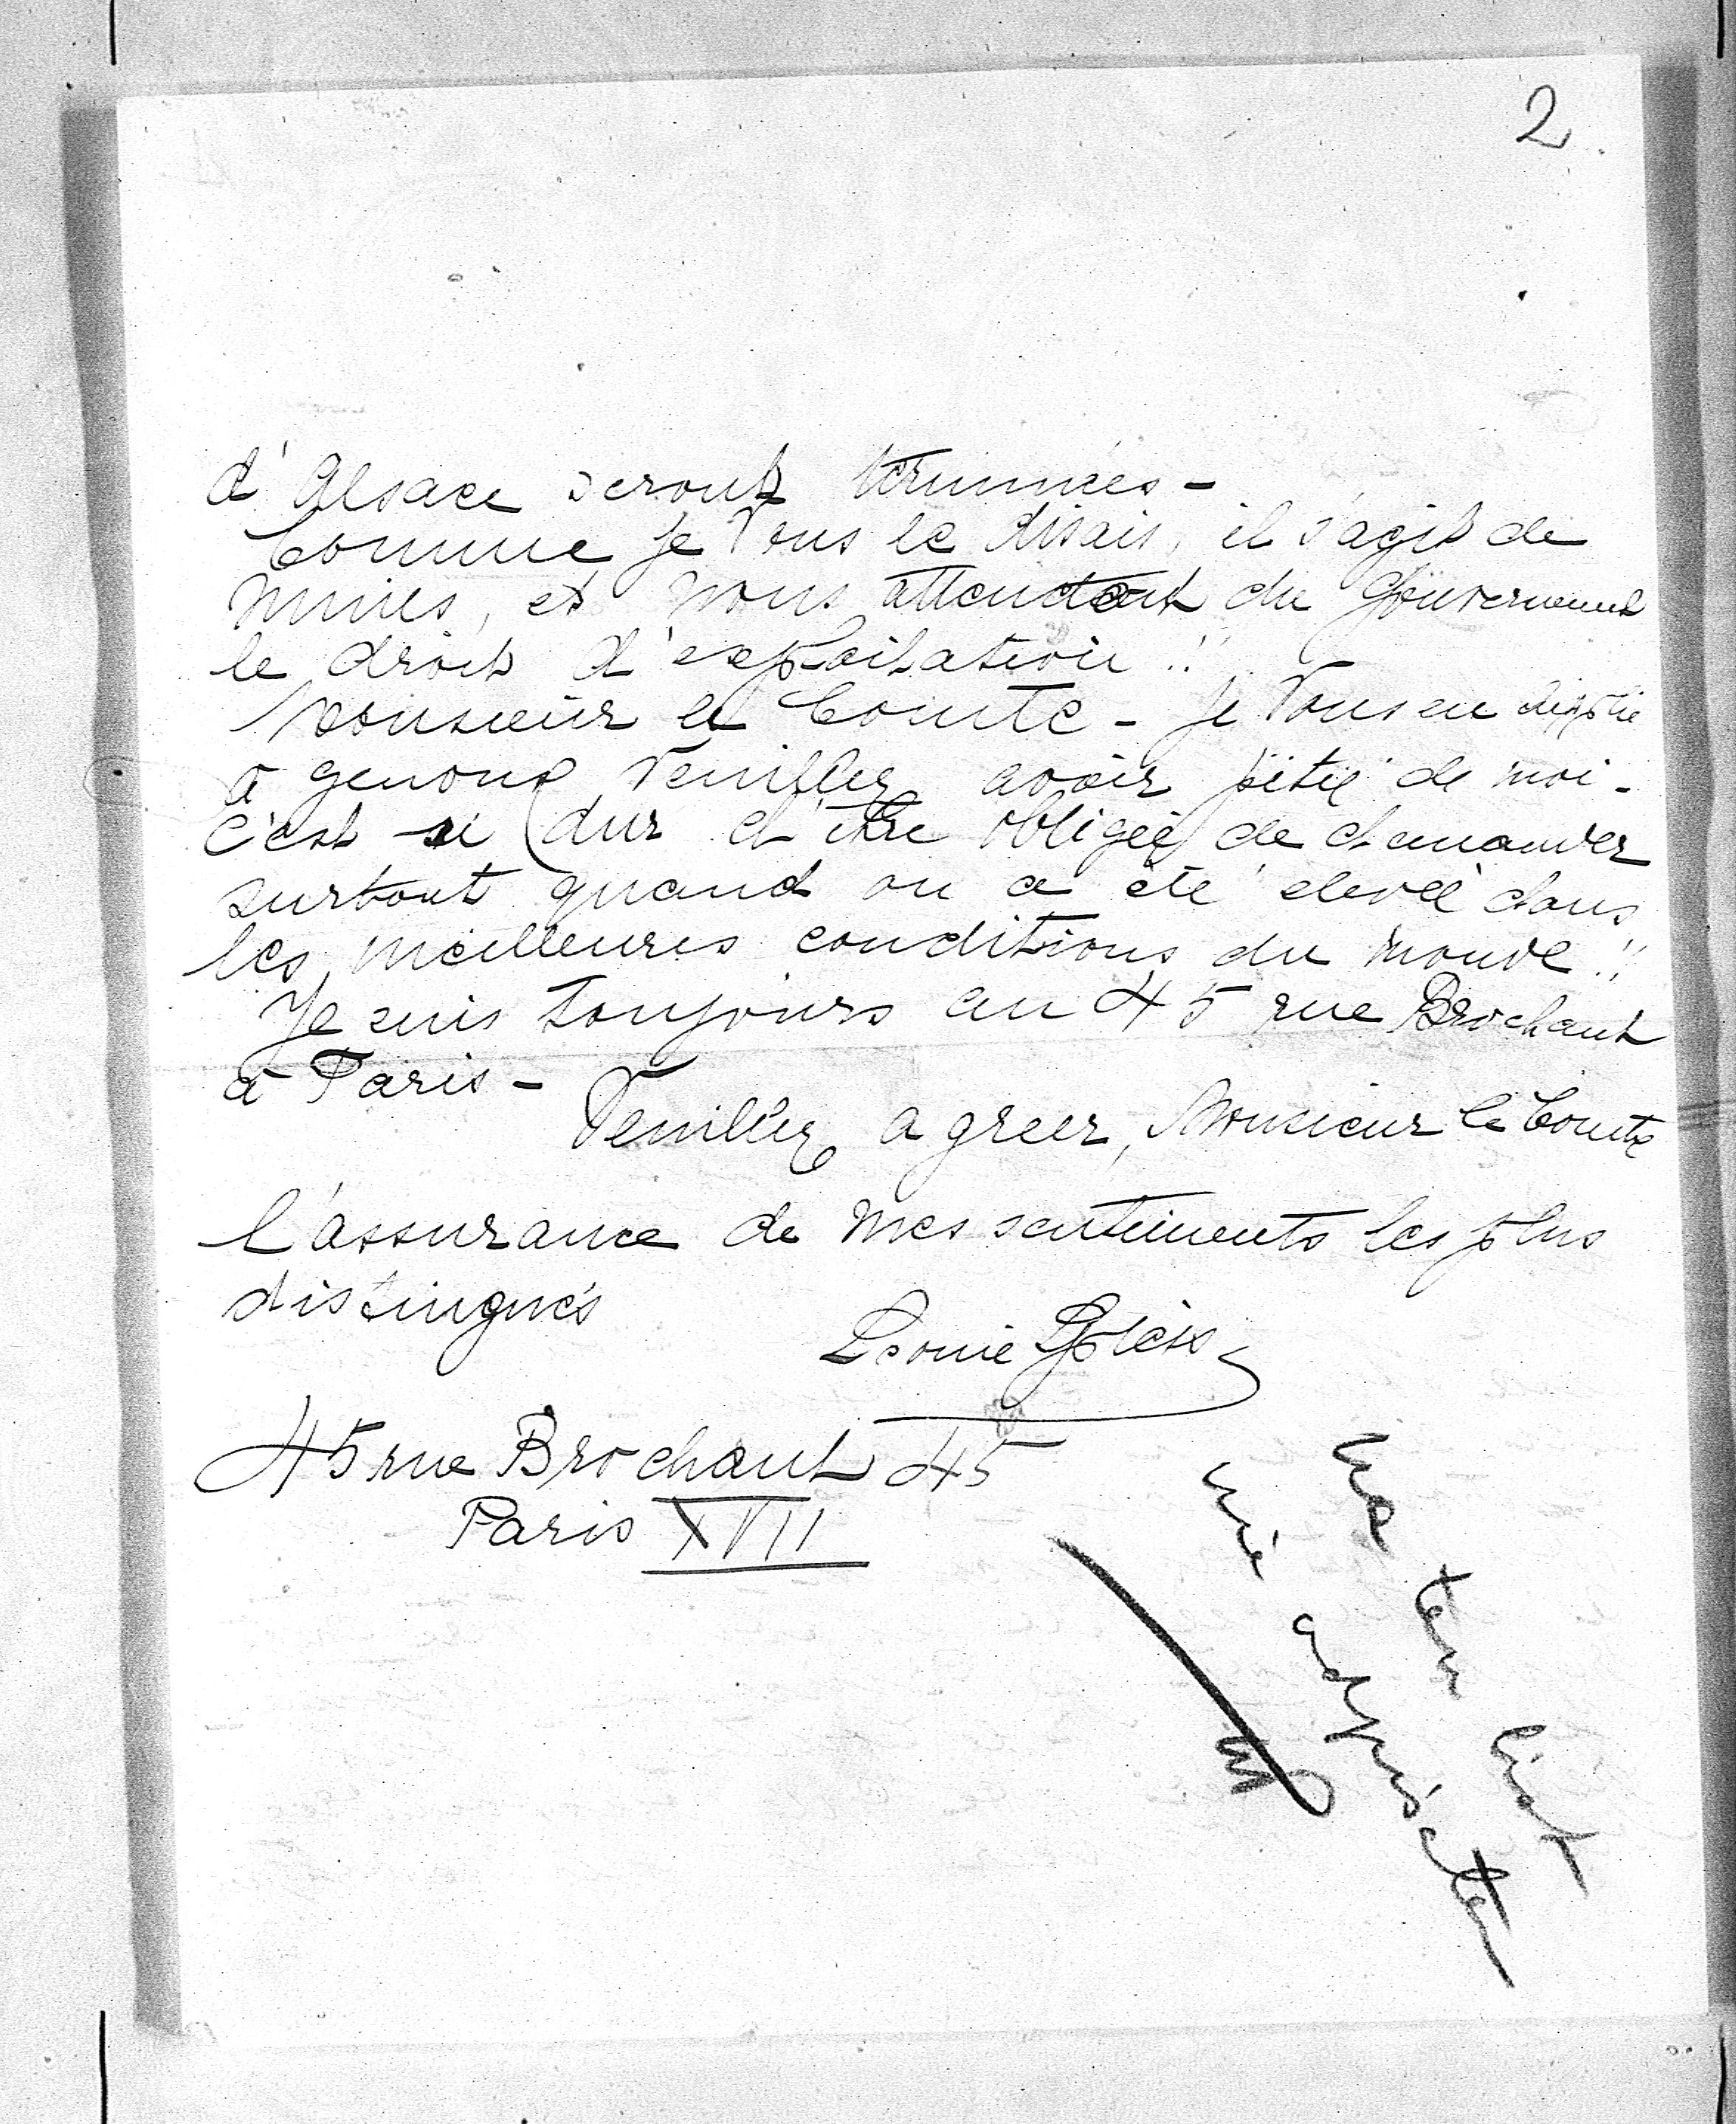 2
d'Alsace seront terminées -
Comme je Vous le disais, il s'agit de
mines, et nous attendent du Gouvernement
le droit d'exploitation !!
Monsieur le Comte - je Vous en
à genoux Veuillez avoir pitié de moi -
c'est si dur d'être obligée de demander
surtout quand on a été élevée dans
les meilleures conditions du monde !!
Je suis toujours au 45 rue Brochant
à Paris -
Veuillez agréer, Monsieur le Comte
l'assurance de mes sentiments les plus
distingués
Léonie
45 rue Brochant 45
Paris XVII